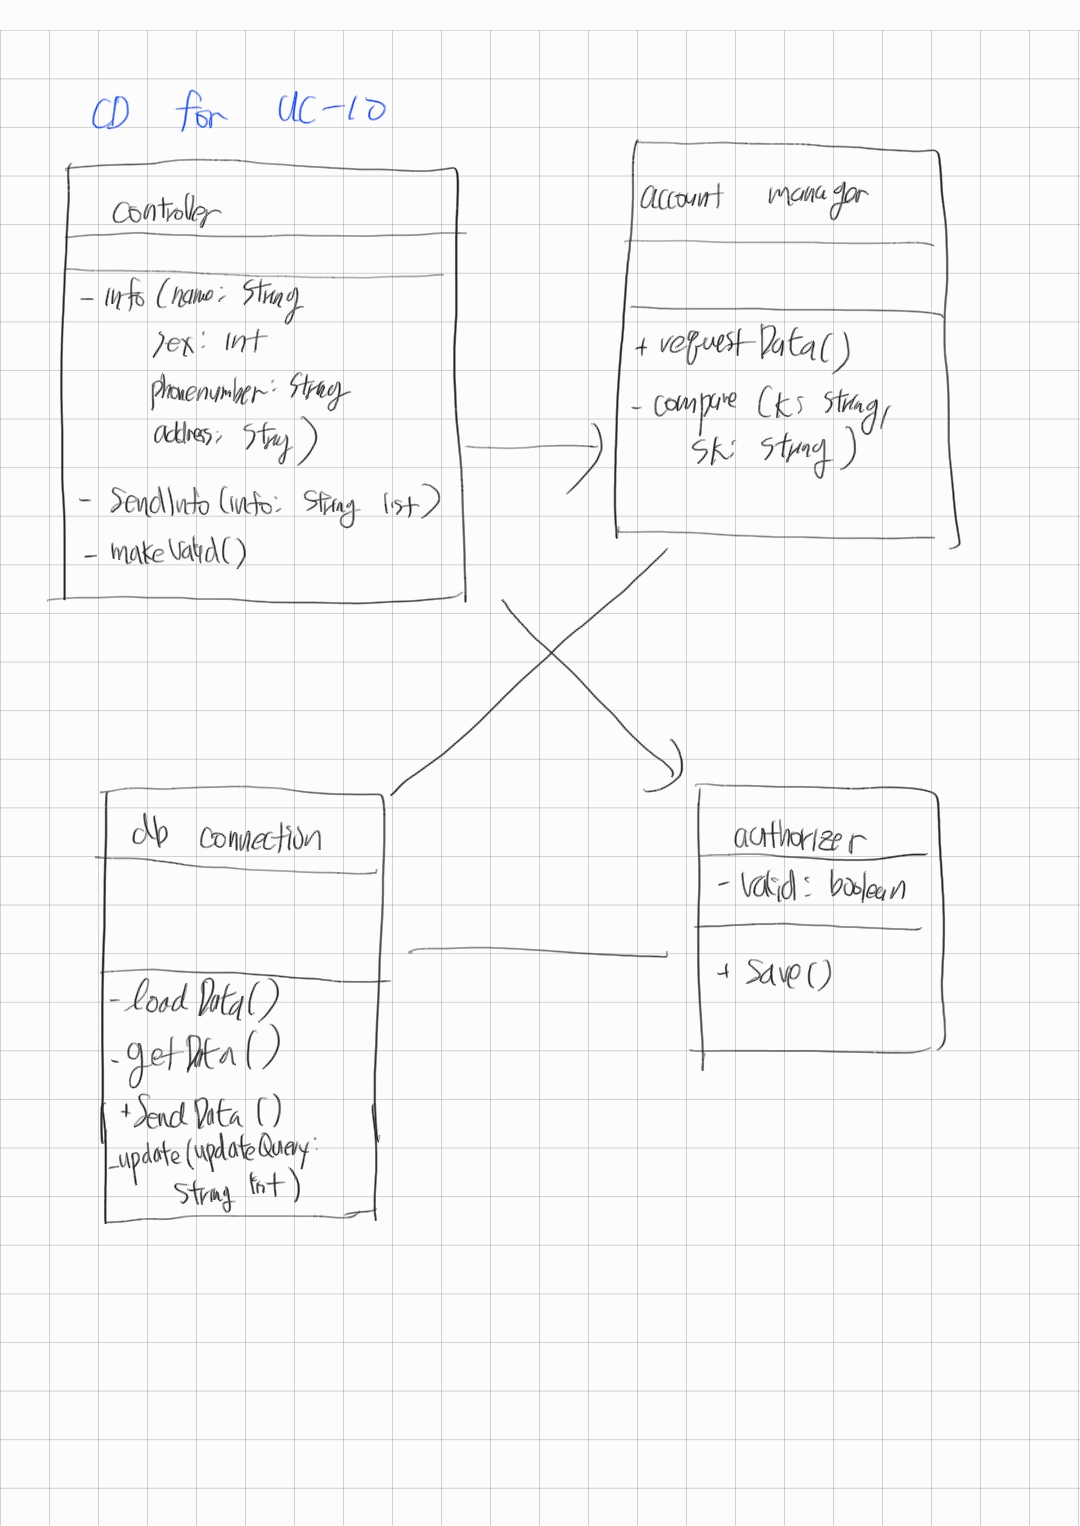 CD for UC-10
controller
- info (name: String
sex: int
phonenumber: String
address: String)
- SendInfo (info: String list)
- makeValid()
account manager
+ requestData()
- compare (ks string,
sk: string)
db connection
- loadData()
- getData()
+ SendData ()
- update (updateQuery:
String list)
authorizer
- Valid: boolean
+ Save()